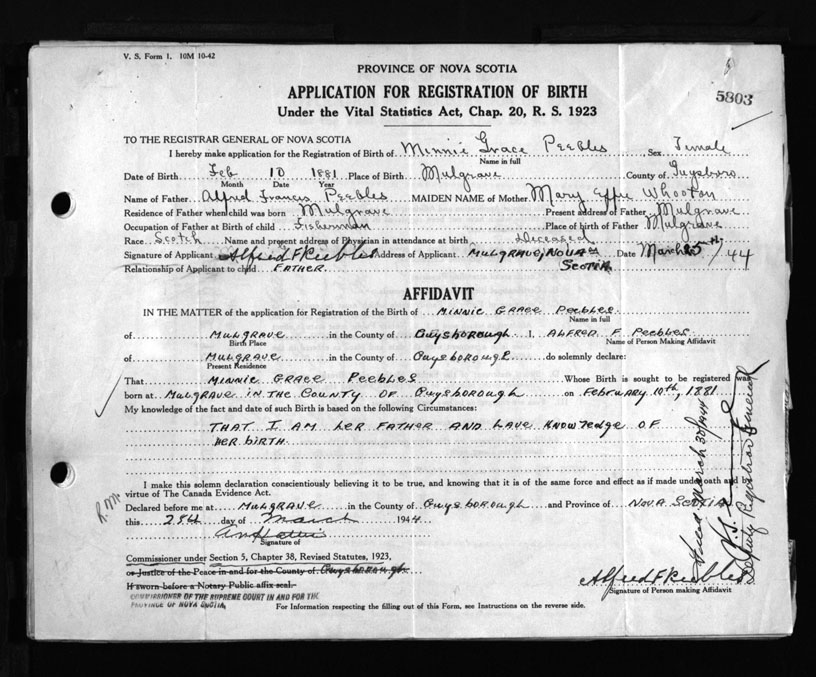 V. S. Form 1. 10M 10-42
PROVINCE OF NOVA SCOTIA
5803
APPLICATION FOR REGISTRATION OF BIRTH
Under the Vital Statistics Act, Chap. 20, R. S. 1923
TO THE REGISTRAR GENERAL OF NOVA SCOTIA
I hereby make application for the Registration of Birth of Minnie Grace Peebles Sex Female
Name in full
Date of Birth Feb 10 1881 Place of Birth Mulgrave County of Guysboro
Month Date Year
Name of Father Alfred Francis Peebles MAIDEN NAME of Mother Mary Effie Whooton
Residence of Father when child was born Mulgrave Present address of Father Mulgrave
Occupation of Father at Birth of child Fisherman Place of birth of Father Mulgrave
Race Scotch Name and present address of Physician in attendance at birth Deceased
Signature of Applicant Alfred F Peebles Address of Applicant MULGRAVE, NOVA Date March 25th/44
SCOTIA
Relationship of Applicant to child FATHER.
AFFIDAVIT
IN THE MATTER of the application for Registration of the Birth of MINNIE GRACE PEEBLES
Name in full
of MULGRAVE in the County of Guysborough I, ALFRED F PEEBLES
Birth Place Name of Person Making Affidavit
of MULGRAVE in the County of Guysborough do solemnly declare:
Present Residence
That MINNIE GRACE PEEBLES Whose Birth is sought to be registered was
born at MULGRAVE IN THE COUNTY OF Guysborough on FEBRUARY 10th, 1881
My knowledge of the fact and date of such Birth is based on the following Circumstances:
THAT I AM HER FATHER AND HAVE KNOWLEDGE OF
HER BIRTH.
I make this solemn declaration conscientiously believing it to be true, and knowing that it is of the same force and effect as if made under oath and by
virtue of The Canada Evidence Act.
R.M.
Declared before me at MULGRAVE in the County of Guysborough and Province of NOVA SCOTIA
this day of March 1944
Signature of
Commissioner under Section 5, Chapter 38, Revised Statutes, 1923,
or Justice of the Peace in and for the County of Guysborough
If sworn before a Notary Public affix seal.
COMMISSIONER OF THE SUPREME COURT IN AND FOR THE
PROVINCE OF NOVA SCOTIA
Alfred F Peebles
Signature of Person making Affidavit
For Information respecting the filling out of this Form, see Instructions on the reverse side.
Filed March 30/1944
Deputy Registrar General